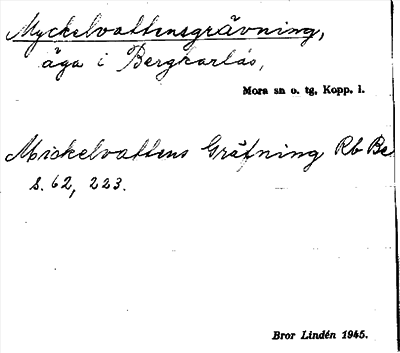 Myckelvattensgrävning,
äga i Bergkarlås,
Mora sn o. tg, Kopp. l.
Miskelvattens Gräfning Rb Be
s. 62, 223.
Bror Lindén 1945.